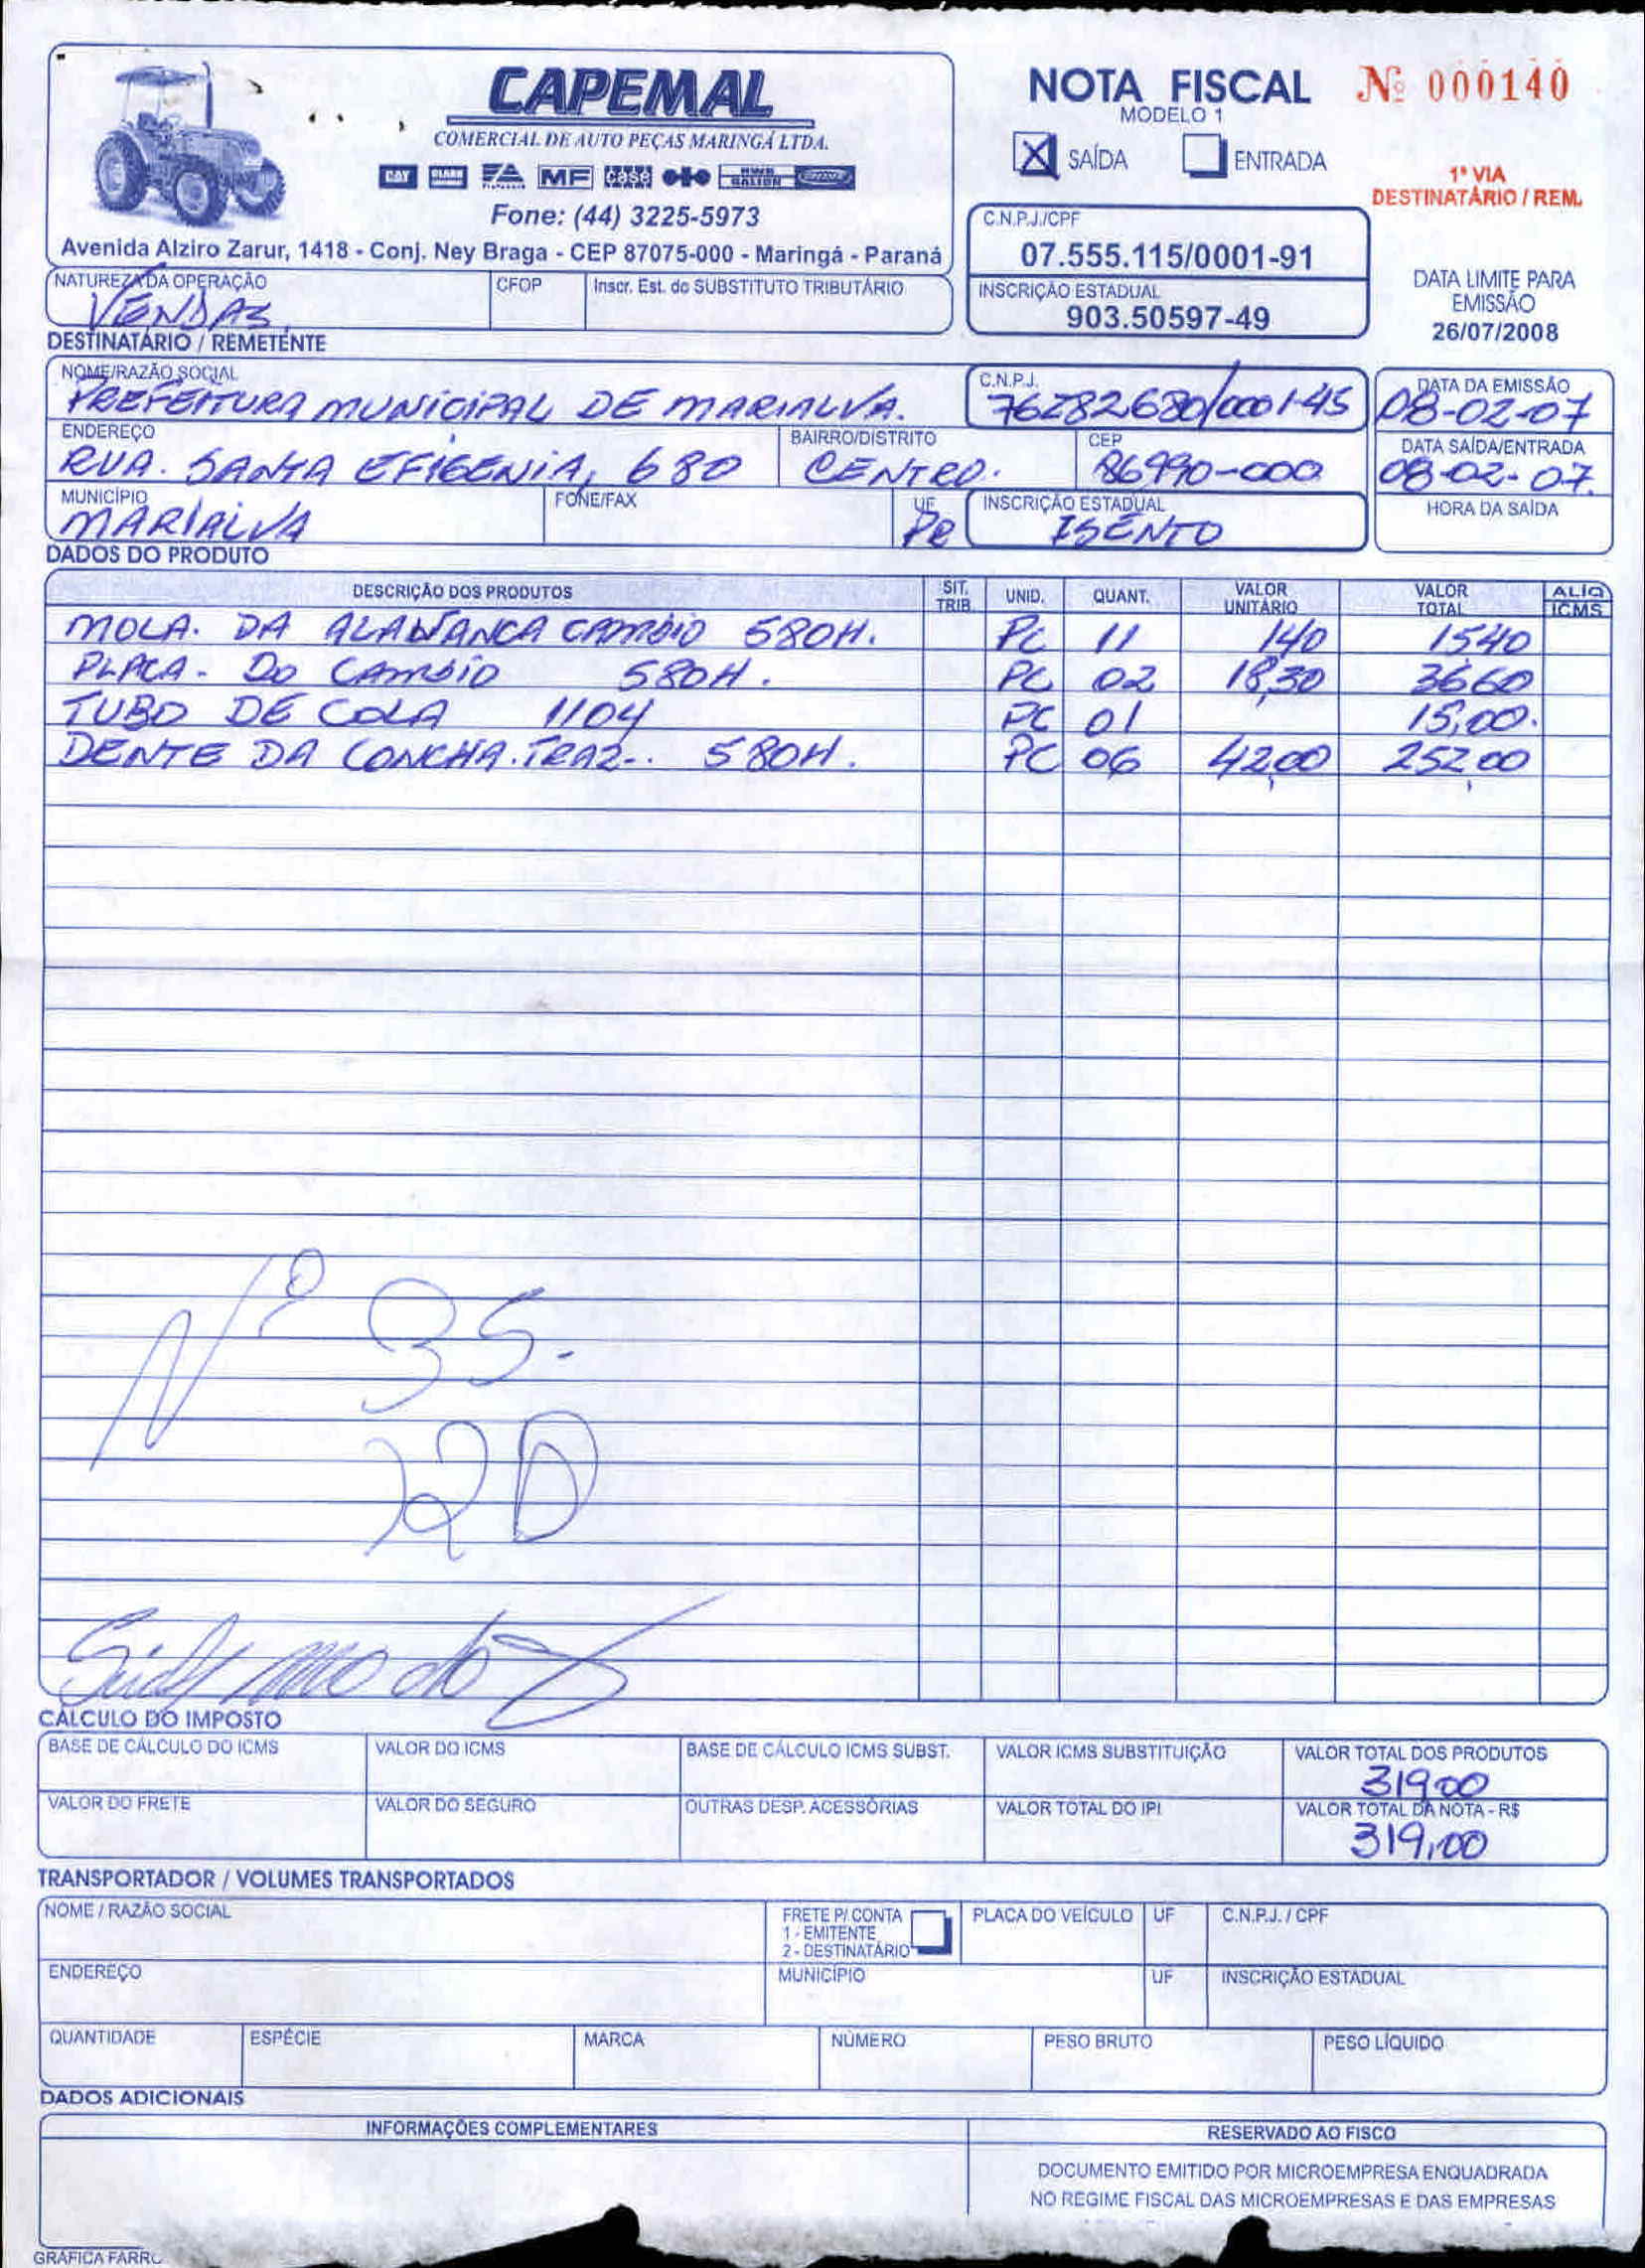 CAPEMAL
COMERCIAL DE AUTO PEÇAS MARINGÁ LTDA.
CAT CLARK FA MF case HWB GALION
Fone: (44) 3225-5973
Avenida Alziro Zarur, 1418 - Conj. Ney Braga - CEP 87075-000 - Maringá - Paraná
NOTA FISCAL Nº 000140
MODELO 1
X SAÍDA ENTRADA
1ª VIA
DESTINATÁRIO / REM.
C.N.P.J./CPF
07.555.115/0001-91
INSCRIÇÃO ESTADUAL
903.50597-49
DATA LIMITE PARA
EMISSÃO
26/07/2008
NATUREZA DA OPERAÇÃO CFOP Inscr. Est. do SUBSTITUTO TRIBUTÁRIO
VENDAS
DESTINATÁRIO / REMETENTE
NOME/RAZÃO SOCIAL C.N.P.J. DATA DA EMISSÃO
PREFEITURA MUNICIPAL DE MARIALVA. 76282680/0001-45 08-02-07
ENDEREÇO BAIRRO/DISTRITO CEP DATA SAÍDA/ENTRADA
RUA. SANTA EFIGENIA, 680 CENTRO. 86990-000 08-02-07.
MUNICÍPIO FONE/FAX UF INSCRIÇÃO ESTADUAL HORA DA SAÍDA
MARIALVA PR ISENTO
DADOS DO PRODUTO
DESCRIÇÃO DOS PRODUTOS SIT. TRIB. UNID. QUANT. VALOR UNITÁRIO VALOR TOTAL ALÍQ ICMS
MOLA. DA ALAVANCA CAMBIO 580H. PC 11 1,40 1540
PLACA. DO CAMBIO 580H. PC 02 18,30 3660
TUBO DE COLA 1104 PC 01 15,00.
DENTE DA CONCHA. TRAZ.. 580H. PC 06 42,00 252,00
Nº 35.
RD
CÁLCULO DO IMPOSTO
BASE DE CÁLCULO DO ICMS VALOR DO ICMS BASE DE CÁLCULO ICMS SUBST. VALOR ICMS SUBSTITUIÇÃO VALOR TOTAL DOS PRODUTOS
319,00
VALOR DO FRETE VALOR DO SEGURO OUTRAS DESP. ACESSÓRIAS VALOR TOTAL DO IPI VALOR TOTAL DA NOTA - R$
319,00
TRANSPORTADOR / VOLUMES TRANSPORTADOS
NOME / RAZÃO SOCIAL FRETE P/ CONTA PLACA DO VEÍCULO UF C.N.P.J. / CPF
1 - EMITENTE
2 - DESTINATÁRIO
ENDEREÇO MUNICÍPIO UF INSCRIÇÃO ESTADUAL
QUANTIDADE ESPÉCIE MARCA NÚMERO PESO BRUTO PESO LÍQUIDO
DADOS ADICIONAIS
INFORMAÇÕES COMPLEMENTARES RESERVADO AO FISCO
DOCUMENTO EMITIDO POR MICROEMPRESA ENQUADRADA
NO REGIME FISCAL DAS MICROEMPRESAS E DAS EMPRESAS
GRÁFICA FARRO